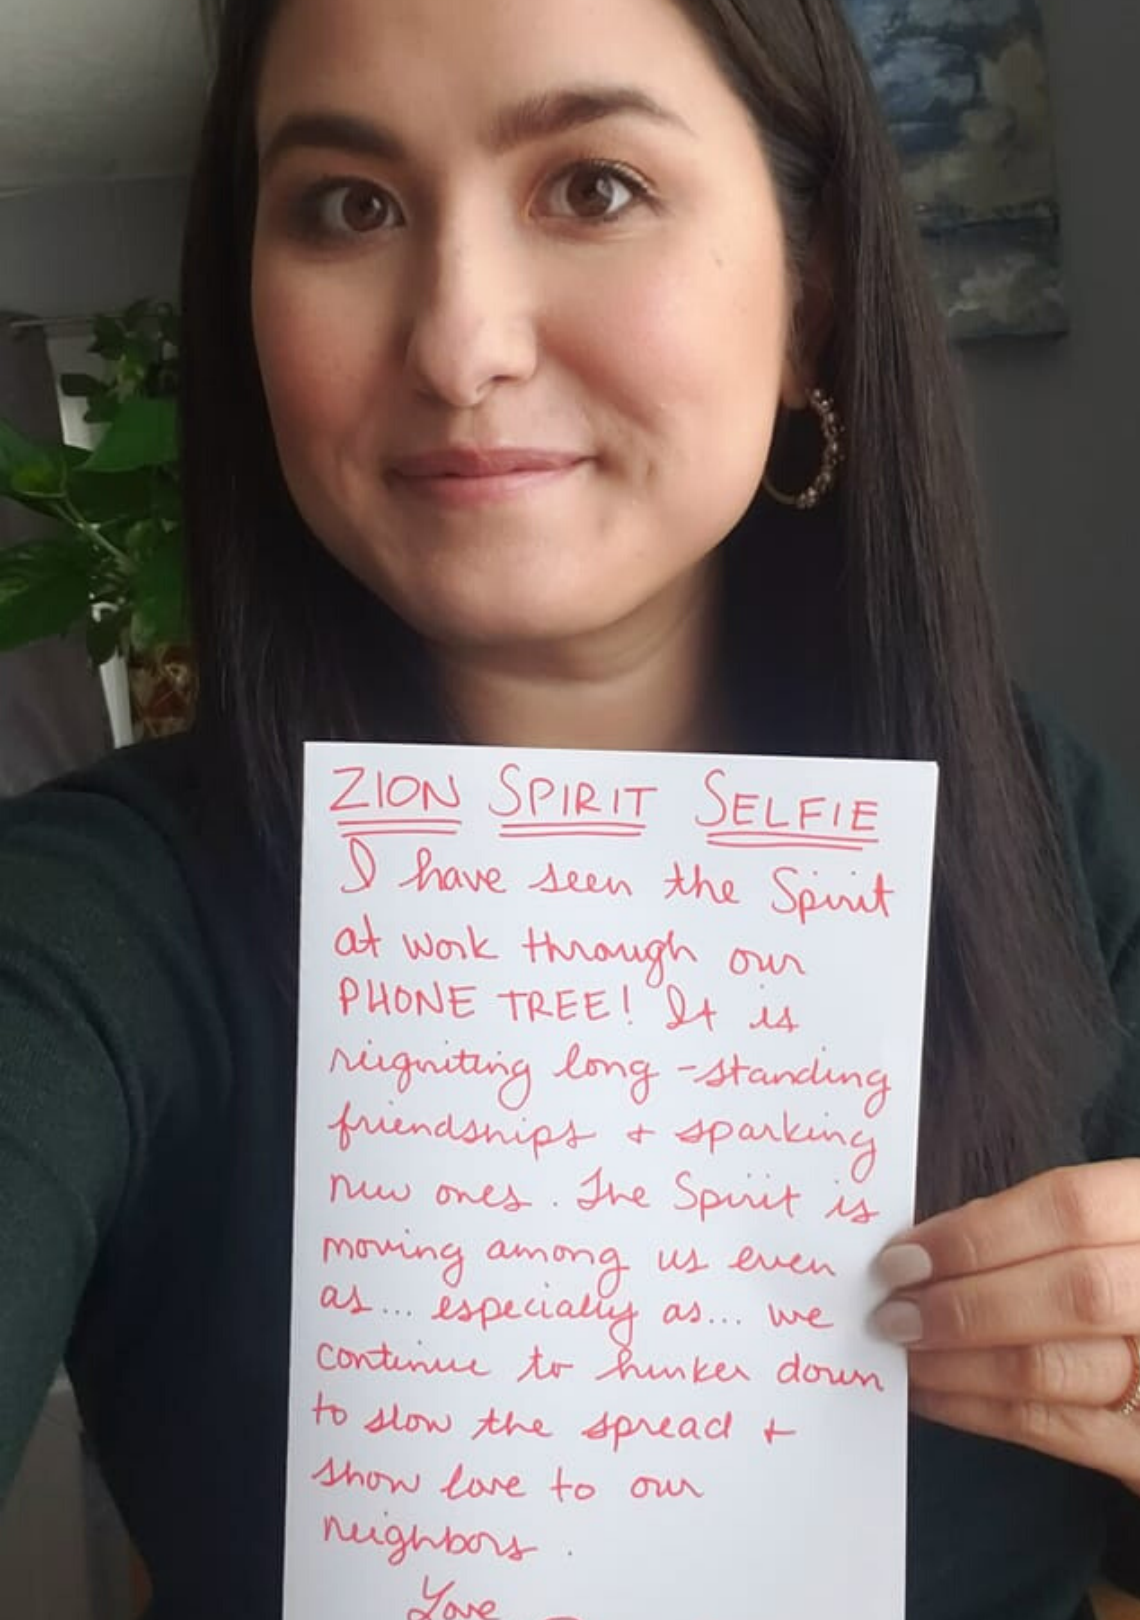 ZION SPIRIT SELFIE
I have seen the Spirit
at work through our
PHONE TREE! It is
reigniting long-standing
friendships + sparking
new ones. The Spirit is
moving among us even
as... especially as... we
continue to hunker down
to slow the spread +
show love to our
neighbors.
Love